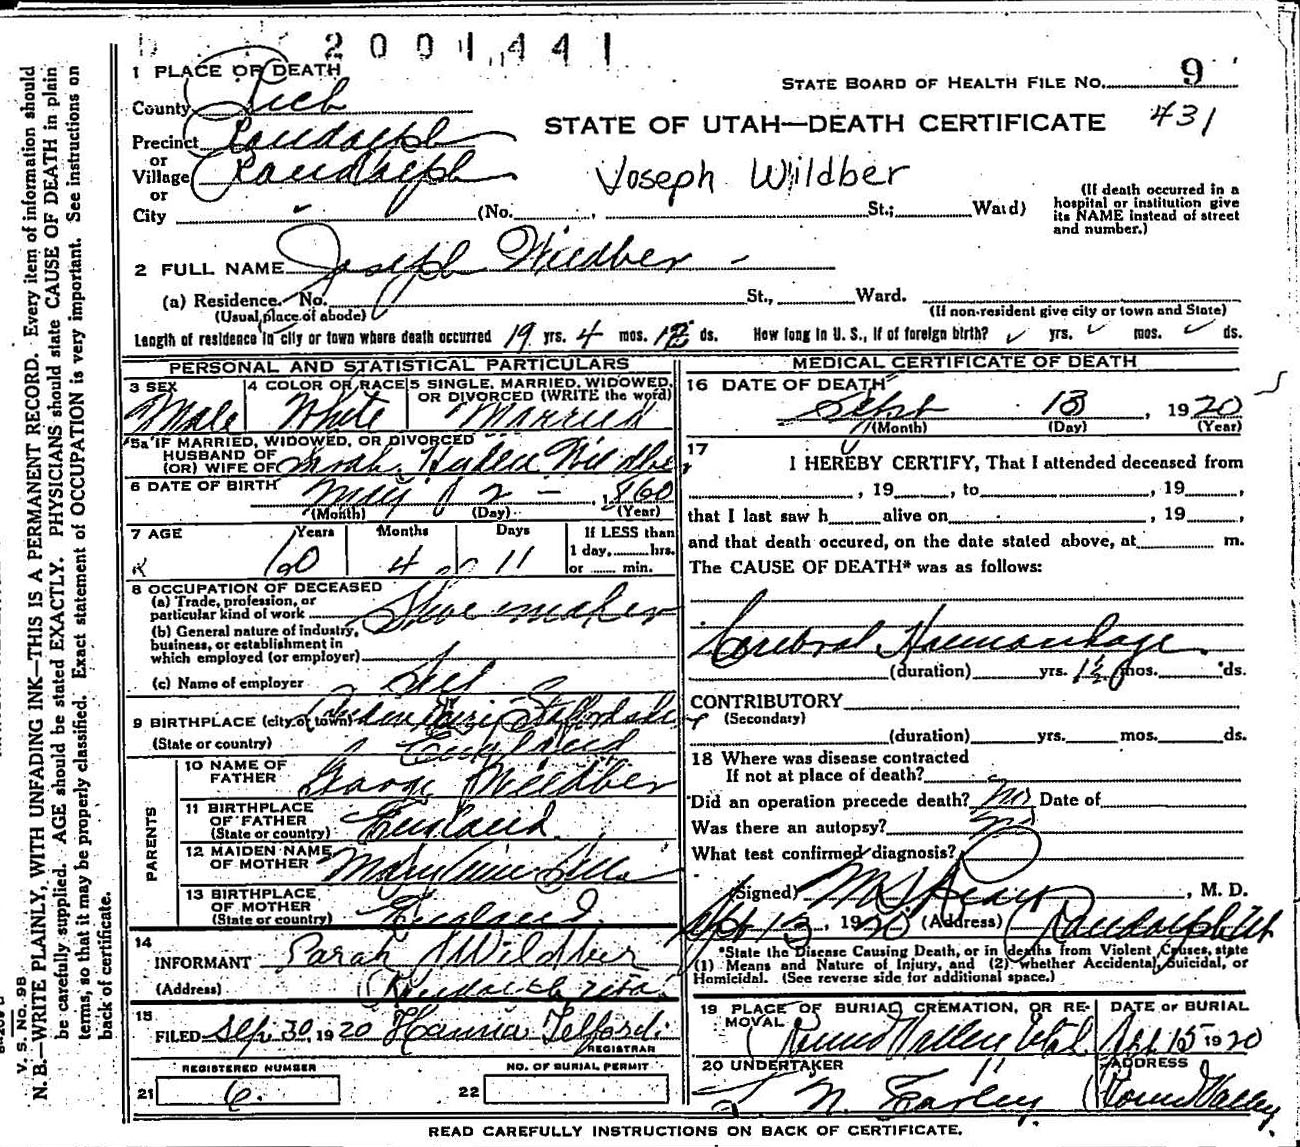 2001441
1 PLACE OF DEATH
STATE BOARD OF HEALTH FILE No. 9
County Rich
STATE OF UTAH—DEATH CERTIFICATE 431
Precinct Randolph
or
Village Randolph
Joseph Wildber
or
City (No. St.; Ward)
(If death occurred in a
hospital or institution give
its NAME instead of street
and number.)
2 FULL NAME Joseph Wildber
(a) Residence. No. St., Ward.
(Usual place of abode) (If non-resident give city or town and State)
Length of residence in city or town where death occurred 19 yrs. 4 mos. ds. How long in U. S., if of foreign birth? yrs. mos. ds.
PERSONAL AND STATISTICAL PARTICULARS
3 SEX 4 COLOR OR RACE 5 SINGLE, MARRIED, WIDOWED,
OR DIVORCED (WRITE the word)
Male White Married
5a IF MARRIED, WIDOWED, OR DIVORCED
HUSBAND OF
(OR) WIFE OF Sarah Wildber
6 DATE OF BIRTH May 2 – 1860
(Month) (Day) (Year)
7 AGE Years Months Days If LESS than
1 day, hrs.
or min.
60 4 11
8 OCCUPATION OF DECEASED
(a) Trade, profession, or
particular kind of work Shoe maker
(b) General nature of industry,
business, or establishment in
which employed (or employer)
(c) Name of employer Self
9 BIRTHPLACE (city or town)
(State or country) England
PARENTS
10 NAME OF
FATHER George Wildber
11 BIRTHPLACE
OF FATHER
(State or country) England
12 MAIDEN NAME
OF MOTHER Mary Ann
13 BIRTHPLACE
OF MOTHER
(State or country) England
14
INFORMANT Sarah H Wildber
(Address) Randolph Utah
15
FILED Sep. 30, 1920 Hannia Telford
REGISTRAR
REGISTERED NUMBER NO. OF BURIAL PERMIT
21 6. 22
MEDICAL CERTIFICATE OF DEATH
16 DATE OF DEATH
Sept 13, 1920
(Month) (Day) (Year)
17
I HEREBY CERTIFY, That I attended deceased from
, 19 , to , 19 ,
that I last saw h alive on , 19 ,
and that death occured, on the date stated above, at m.
The CAUSE OF DEATH* was as follows:
Cerebral Haemorrhage.
(duration) yrs. 1½ mos. ds.
CONTRIBUTORY
(Secondary)
(duration) yrs. mos. ds.
18 Where was disease contracted
If not at place of death?
Did an operation precede death? No Date of
Was there an autopsy? No
What test confirmed diagnosis?
(Signed) , M. D.
Sept 13, 1920 (Address) Randolph Ut
*State the Disease Causing Death, or in deaths from Violent Causes, state
(1) Means and Nature of Injury, and (2) whether Accidental, Suicidal, or
Homicidal. (See reverse side for additional space.)
19 PLACE OF BURIAL, CREMATION, OR RE-
MOVAL DATE OF BURIAL
Round Valley Utah 15 1920
20 UNDERTAKER ADDRESS
N. Earley Round Valley
READ CAREFULLY INSTRUCTIONS ON BACK OF CERTIFICATE.
V. S. No. 98
N. B.—WRITE PLAINLY, WITH UNFADING INK—THIS IS A PERMANENT RECORD. Every item of information should
be carefully supplied. AGE should be stated EXACTLY. PHYSICIANS should state CAUSE OF DEATH in plain
terms, so that it may be properly classified. Exact statement of OCCUPATION is very important. See instructions on
back of certificate.